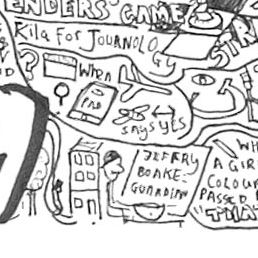 ENDERS' GAME
Kila For JOURNOLO
GY
STRI
?
When
I
PAD
says YES
JEFFRY
BOAKE-
GUARDIAN
WH
A GIR
COLOU
PASSED
"THAT